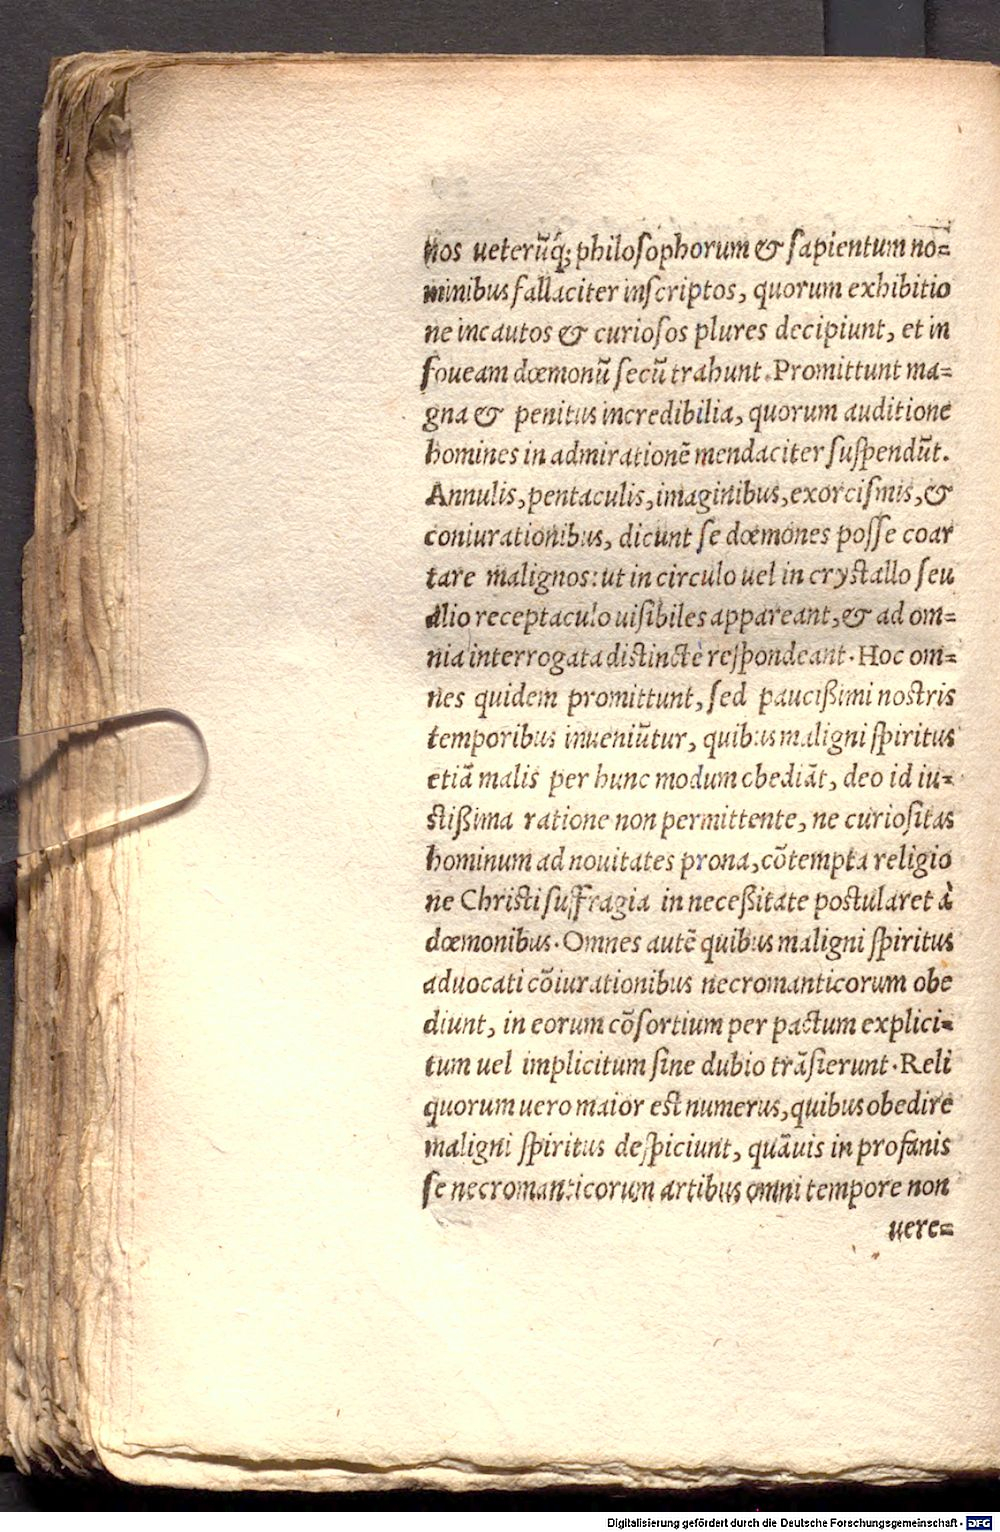 nos ueterũq́; philoſophorum & ſapientum no=
minibus fallaciter inſcriptos, quorum exhibitio
ne incautos & curioſos plures decipiunt, et in
foueam dœmonũ ſecũ trahunt. Promittunt ma=
gna & penitus incredibilia, quorum auditione
homines in admirationẽ mendaciter ſuſpendũt.
Annulis, pentaculis, imaginibus, exorciſmis, &
coniurationibus, dicunt ſe dœmones poſſe coar
tare malignos: ut in circulo uel in cryſtallo ſeu
alio receptaculo uiſibiles appareant, & ad om=
nia interrogata diſtinctè reſpondeant. Hoc om=
nes quidem promittunt, ſed pauciſsimi noſtris
temporibus inueniũtur, quibus maligni ſpiritus
etiã malis per hunc modum obediãt, deo id iu=
ſtiſsima ratione non permittente, ne curioſitas
hominum ad nouitates prona, cõtempta religio
ne Chriſti ſuffragia in neceſsitate poſtularet à
dœmonibus. Omnes autẽ quibus maligni ſpiritus
aduocati cõiurationibus necromanticorum obe
diunt, in eorum cõſortium per pactum explici=
tum uel implicitum ſine dubio trãſierunt. Reli
quorum uero maior eſt numerus, quibus obedire
maligni ſpiritus deſpiciunt, quãuis in profanis
ſe necromanticorum artibus omni tempore non
uere=
Digitalisierung gefördert durch die Deutsche Forschungsgemeinschaft - DFG